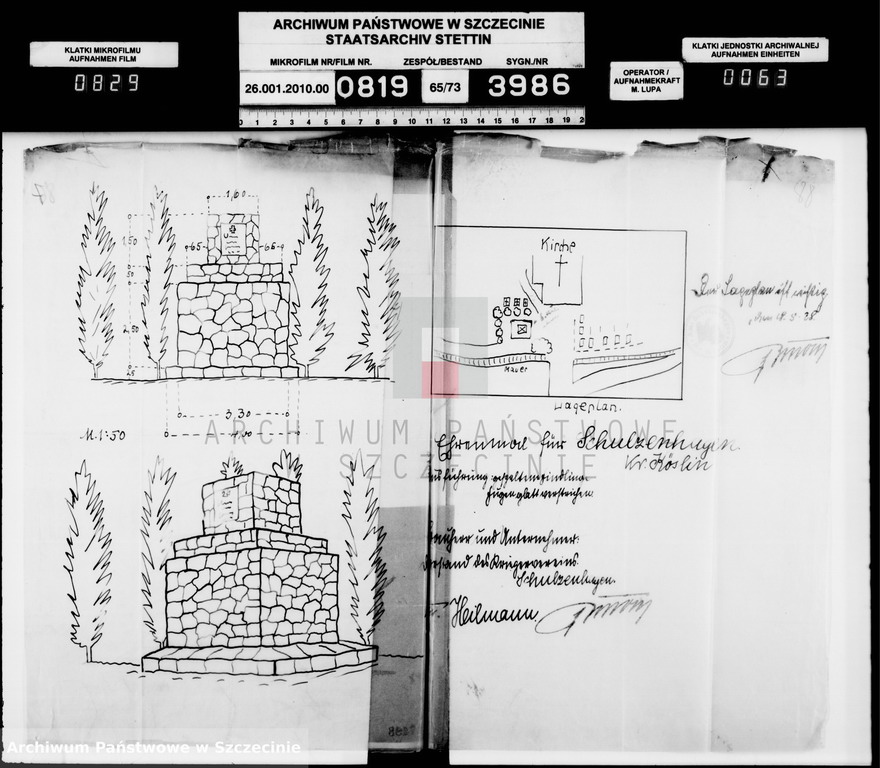 ARCHIWUM PAŃSTWOWE W SZCZECINIE
STAATSARCHIV STETTIN
KLATKI MIKROFILMU
AUFNAHMEN FILM
0829
MIKROFILM NR/FILM NR. ZESPÓŁ/BESTAND SYGN./NR
26.001.2010.00 0819 65/73 3986
0 1 2 3 4 5 6 7 8 9 10 11 12 13 14 15 16 17 18 19 2
OPERATOR /
AUFNAHMEKRAFT
M. LUPA
KLATKI JEDNOSTKI ARCHIWALNEJ
AUFNAHMEN EINHEITEN
0063
1,60
1,50
65 65
50
2,50
25
3,30
4,00
M. 1:50
Kirche
Mauer
Lageplan.
Der Lageplan ist richtig,
18.5.28
Ehrenmal für Schulzenhagen
Kr. Köslin
Fugen glatt verstrichen.
Bauherr und Unternehmer:
Vorstand des Kriegervereins
Schulzenhagen.
Heilmann.
ARCHIWUM PAŃSTWOWE
SZCZECINIE
Archiwum Państwowe w Szczecinie